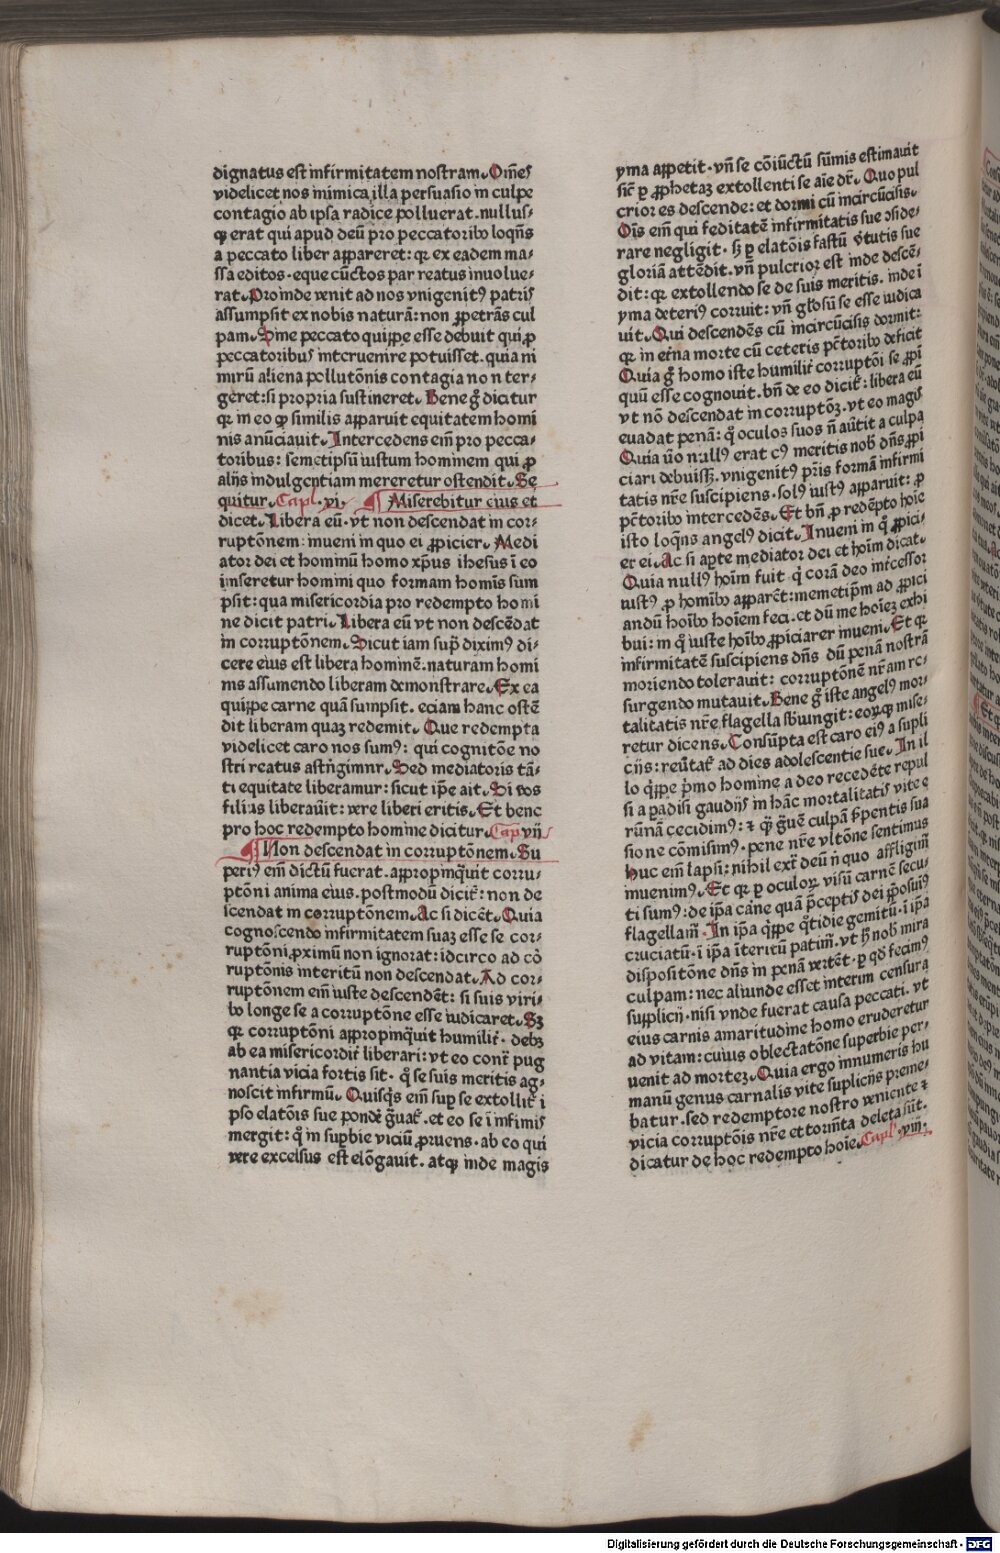 dignatus est infirmitatem nostram. Om̄es
videlicet nos inimica illa persuasio in culpe
contagio ab ipsa radice polluerat. nullus⸗
qꝫ erat qui apud deū pro peccatoribꝰ loqn̄s
a peccato liber appareret: qꝛ ex eadem ma⸗
ssa editos. eque cūctos par reatus inuolue⸗
rat. Proinde venit ad nos vnigenitꝰ patris
assumpsit ex nobis naturā: non ꝓpetrās cul
pam. Sine peccato quippe esse debuit qui ꝓ
peccatoribus interuenire potuisset. quia ni
mirū aliena pollutōnis contagia non ter⸗
geret: si propria sustineret. Bene gͦ dicitur
qꝛ in eo qͦ similis apparuit equitatem homi
nis anūciauit. Intercedens em̄ pro pecca⸗
toribus: semetipsū iustum hominem qui ꝓ
alijs indulgentiam mereretur ostendit. Se
quitur. Capl. vi. ¶ Miserebitur eius et
dicet. Libera eū. vt non descendat in cor⸗
ruptōnem: inueni in quo ei ꝓpicier. Medi
ator dei et hominū homo xp̄us ihesus ī eo
insereretur homini quo formam homīs sum
psit: qua misericordia pro redempto homi
ne dicit patri. Libera eū vt non descēdat
in corruptōnem. Sicut iam supͣ diximꝰ di⸗
cere eius est libera hominē. naturam homi
nis assumendo liberam demonstrare. Ex ea
quippe carne quā sumpsit. eciam hanc ostē
dit liberam quaꝫ redemit. Que redempta
videlicet caro nos sumꝰ: qui cognitōe no
stri reatus astrīgimur. Sed mediatoris tā⸗
ti equitate liberamur: sicut ip̄e ait. Si vos
filius liberauīt: vere liberi eritis. Et bene
pro hoc redempto homine dicitur. Cap vij
¶ Non descendat in corruptōnem. Su
periꝰ em̄ dictū fuerat. appropinqͥuit corru⸗
ptōni anima eius. postmodū dicit̄: non de
scendat in corruptōnem. Ac si dicēt. Quia
cognoscendo infirmitatem suaꝫ esse se cor⸗
ruptōni ꝓximū non ignorat: idcirco ad cō
ruptōnis interitū non descendat. Ad cor⸗
ruptōnem em̄ iuste descendēt: si suis viri⸗
bꝰ longe se a corruptōne esse iudicaret. Sꝫ
qꝛ corruptōni appropinqͥuit humilit̄. debꝫ
ab ea misericordit̄ liberari: vt eo contͣ pug
nantia vicia fortis sit. qͦ se suis meritis ag⸗
noscit infirmū. Quisqͥs em̄ sup se extollit: i
pso elatōis sue pondē gͣuat̄. et eo se ī infimis
mergit: qͦ in supbie viciū ꝓruens. ab eo qui
vere excelsus est elōgauit. atqꝫ inde magis
yma appetit. vn̄ se cōiūctū sūmis estimauit
sic̄ ꝑ ꝓphetaꝫ extollenti se aīe dr̄. Quo pul
crior es descende: et dormi cū incircūcisis.
Oīs em̄ qui feditatē infirmitatis sue ɔside⸗
rare negligit. sꝫ ꝑ elatōis fastū vͥtutis sue
gloriā attēdit. vn̄ pulcrior est inde descē⸗
dit: qꝛ extollendo se de suis meritis. inde ī
yma deteriꝰ corruit: vn̄ gl̄osū se esse iudica
uit. Qui descendēs cū incircūcisis dormit:
qꝛ in et̄na morte cū ceteris pctōribꝰ deficit
Quia gͦ homo iste humilit̄ corruptōi se ꝓpi
quū esse cognouit. bn̄ de eo dicit̄: libera eū
vt nō descendat in corruptōꝫ. vt eo magis
euadat penā: qͦ oculos suos n̄ aūtit a culpa
Quia ūo nullꝰ erat cꝰ meritis nob̄ dn̄s ꝓpi
ciari debuissꝫ. vnigenitꝰ pr̄is formā infirmi
tatis nr̄e suscipiens. solꝰ iustꝰ apparuit: ꝓ
pctōribꝰ intercedēs. Et bn̄ ꝓ redēpto hoīe
isto loqn̄s angelꝰ dicit. Inueni in qͦ ꝓpici⸗
er ei. Ac si apte mediator dei et hoīm dicat.
Quia nullꝰ hoīm fuit qͥ corā deo intcessor
iustꝰ ꝓ homībꝰ apparēt: memetip̄m ad ꝓpici
andū hoībꝰ hoīem feci. et dū me hoīeꝫ exhi
bui: in qͦ iuste hoībꝰ ꝓpiciarer inueni. Et qꝛ
infirmitatē suscipiens dn̄s dū penā nostrā
moriendo tolerauit: corruptōnē nr̄am re⸗
surgendo mutauit. Bene gͦ iste angelꝰ mor⸗
talitatis nr̄e flagella sb̄iungit: eorūqꝫ mise⸗
retur dicens. Consūpta est caro eiꝰ a supli
cijs: reūtat̄ ad dies adolescentie sue. In il
lo qͥppe pͥmo homine a deo recedēte repul
si a padisi gaudijs in hāc mortalitatis vite e
rūnā cecidimꝰ: ⁊ qͣ gͣuē culpā sꝑpentis sua
sione cōmisimꝰ. pene nr̄e vltōne sentimus
Huc em̄ lapsi: nihil extͣ deū n̄ quo affligim̄
inuenimꝰ. Et qꝛ ꝑ oculoꝝ visū carnē secu⸗
ti sumꝰ: de ip̄a cāne quā p̄ceptis dei p̄posuīꝰ
flagellam̄. In ip̄a qͥppe qͦtidie gemitū. ī ip̄a
cruciatū. ī ip̄a īteritū patim̄. vt hͦ nob̄ mira
dispositōne dn̄s in penā vertēt. ꝑ qd̄ fecimꝰ
culpam: nec aliunde esset interim censura
supplicij. nisi vnde fuerat causa peccati. vt
eius carnis amaritudine homo erudiretur
ad vitam: cuius oblectatōne superbie per⸗
uenit ad morteꝫ. Quia ergo innumeris hu
manū genus carnalis vite suplicijs preme⸗
batur. sed redemptore nostro veniente ⁊
vicia corruptōis nr̄e et torm̄ta deleta sūt.
dicatur de hoc redempto hoīe. Capl. viij.